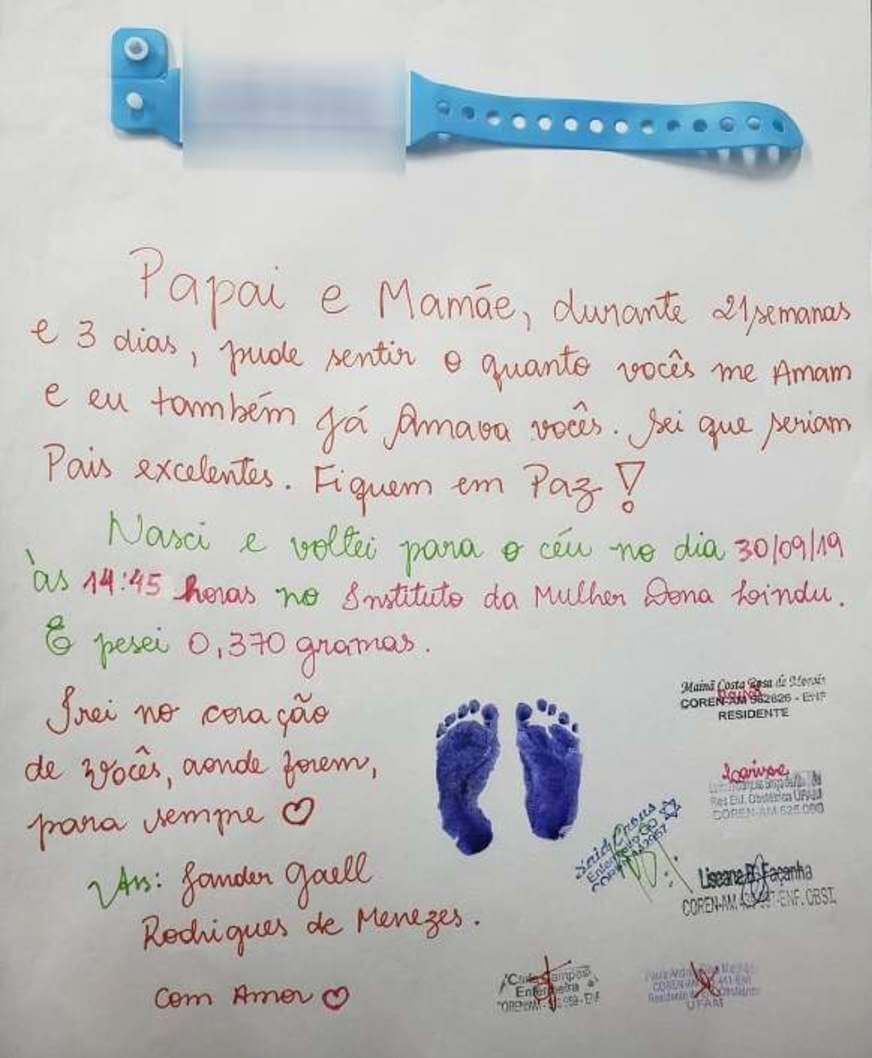 Papai e Mamãe, durante 21 semanas
e 3 dias, pude sentir o quanto vocês me Amam
e eu também Já Amava vocês. Sei que seriam
Pais excelentes. Fiquem em Paz!
Nasci e voltei para o céu no dia 30/09/19
às 14:45 horas no Instituto da Mulher Dona Lindu.
E pesei 0,370 gramas.
Irei no coração
de vocês, aonde forem,
para sempre
Ass: Sander Gaell
Rodrigues de Menezes.
Com Amor
Mainã Costa Rosa de Morais
COREN-AM - ENF
RESIDENTE
Res Enf. Obstétrica UFAM
COREN-AM
Liseana B. Façanha
COREN-AM ENF. OBST.
Campos
Enfermeira
UFAM